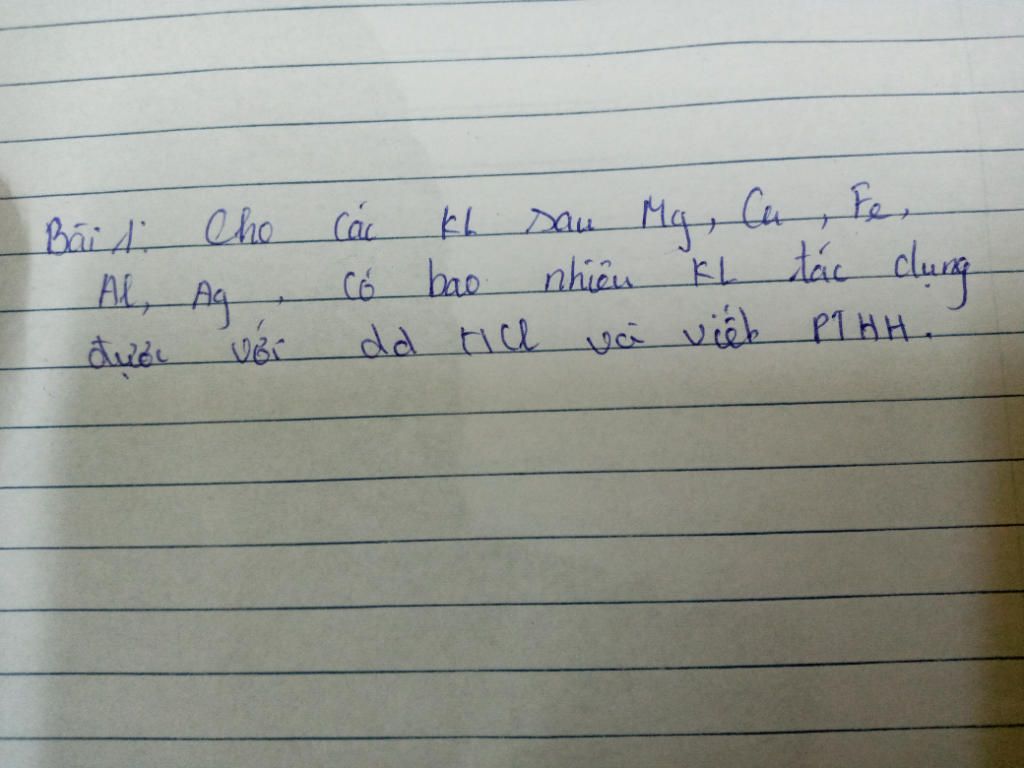 Bài 1: Cho các KL sau Mg, Cu, Fe,
Al, Ag, có bao nhiêu KL tác dụng
được với dd HCl và viết PTHH.